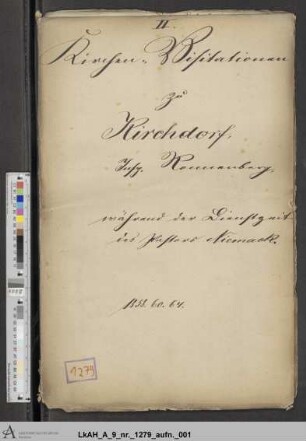 II.
Kirchen-Visitationen
zu
Kirchdorf,
Insp. Ronnenberg,
während der Dienstzeit
des Pastors
1860. 64.
1279
LkAH_A_9_nr._1279_aufn._001